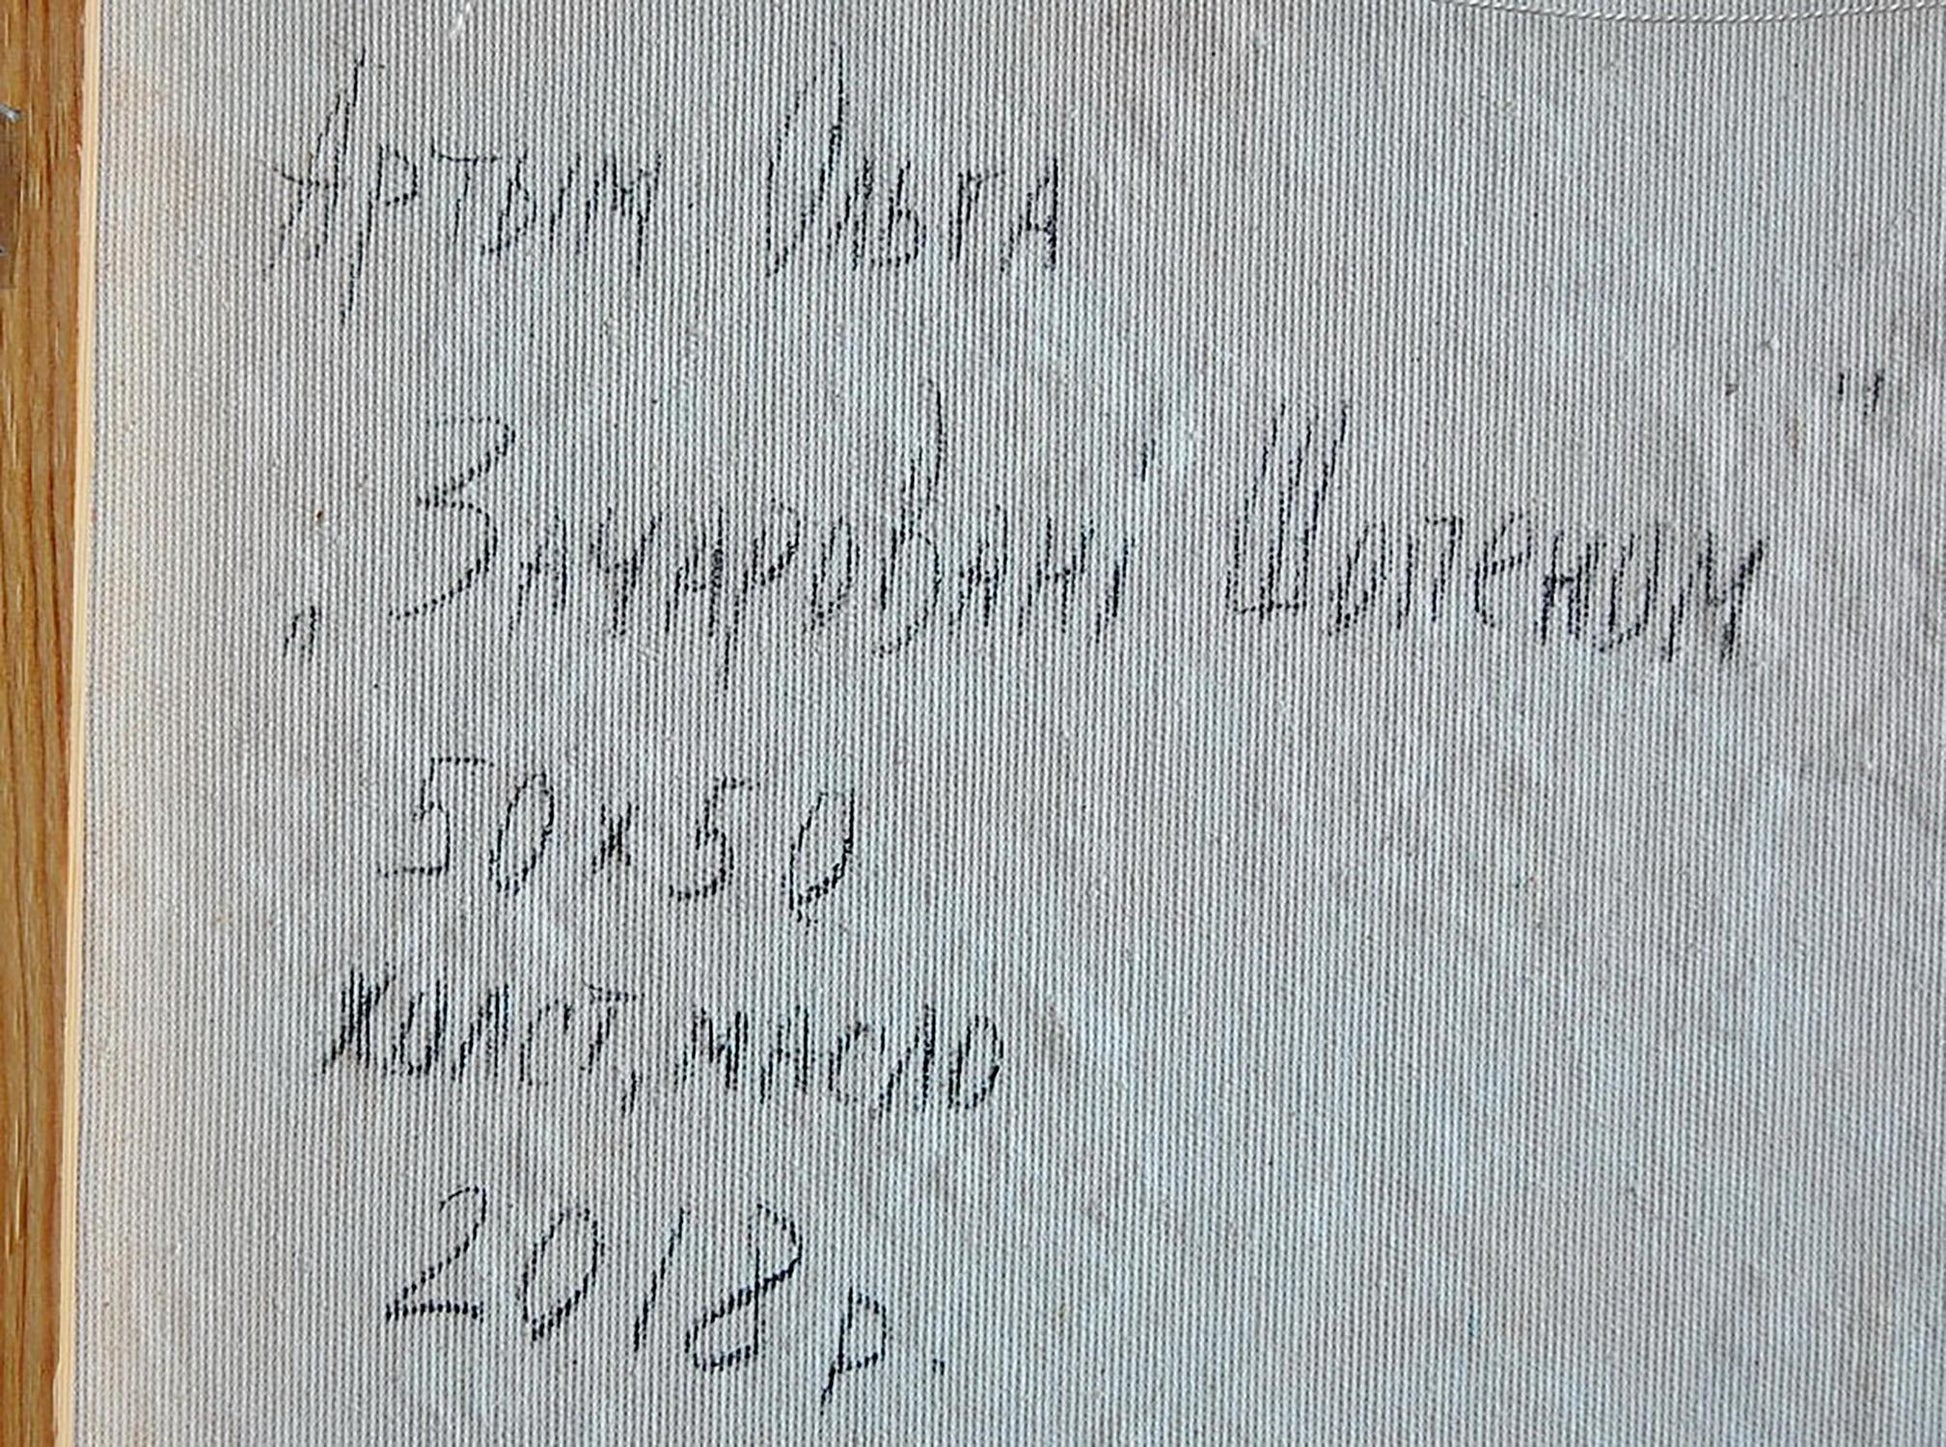 Артым Ольга
„Зачаровані Шопеном"
50х50
холст, масло
2018 р.